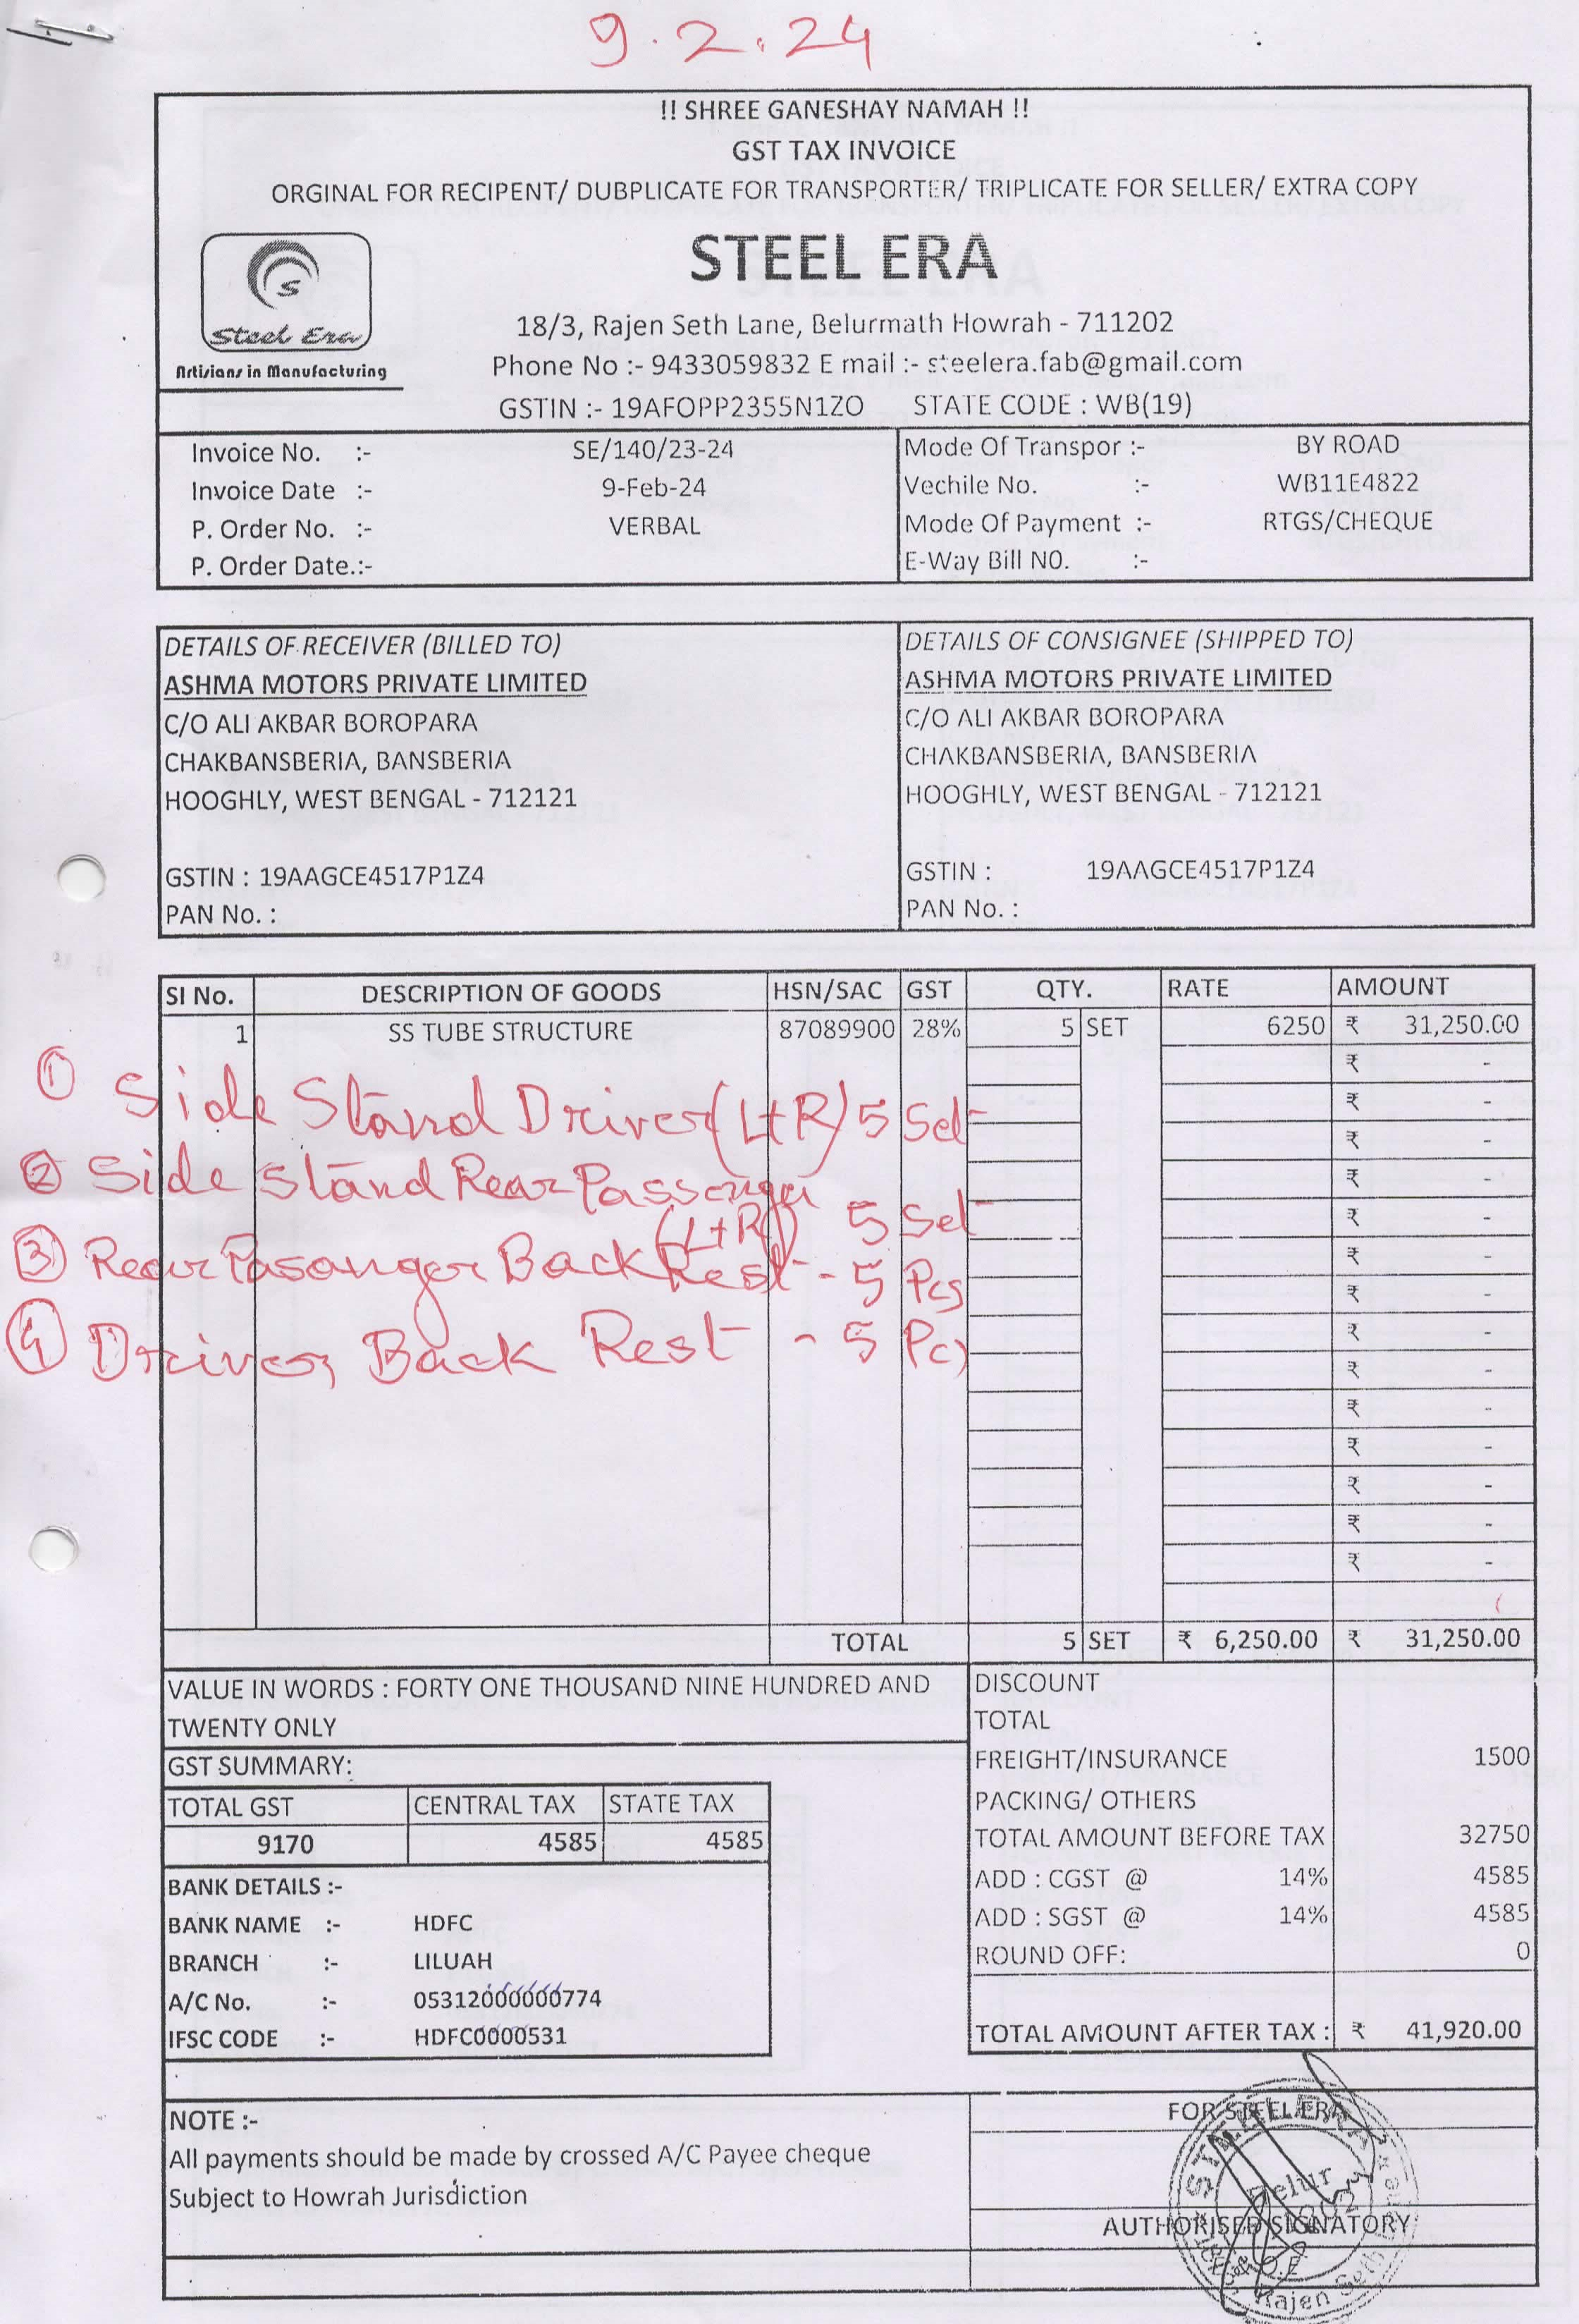 9.2.24
!! SHREE GANESHAY NAMAH !!
GST TAX INVOICE
ORGINAL FOR RECIPENT/ DUBPLICATE FOR TRANSPORTER/ TRIPLICATE FOR SELLER/ EXTRA COPY
S
Steel Era
Artisians in Manufacturing
STEEL ERA
18/3, Rajen Seth Lane, Belurmath Howrah - 711202
Phone No :- 9433059832 E mail :- steelera.fab@gmail.com
GSTIN :- 19AFOPP2355N1ZO STATE CODE : WB(19)
Invoice No. :- SE/140/23-24 Mode Of Transpor :- BY ROAD
Invoice Date :- 9-Feb-24 Vechile No. :- WB11E4822
P. Order No. :- VERBAL Mode Of Payment :- RTGS/CHEQUE
P. Order Date.:- E-Way Bill NO. :-
DETAILS OF RECEIVER (BILLED TO)
ASHMA MOTORS PRIVATE LIMITED
C/O ALI AKBAR BOROPARA
CHAKBANSBERIA, BANSBERIA
HOOGHLY, WEST BENGAL - 712121
GSTIN : 19AAGCE4517P1Z4
PAN No. :
DETAILS OF CONSIGNEE (SHIPPED TO)
ASHMA MOTORS PRIVATE LIMITED
C/O ALI AKBAR BOROPARA
CHAKBANSBERIA, BANSBERIA
HOOGHLY, WEST BENGAL - 712121
GSTIN : 19AAGCE4517P1Z4
PAN No. :
SI No. DESCRIPTION OF GOODS HSN/SAC GST QTY. RATE AMOUNT
1 SS TUBE STRUCTURE 87089900 28% 5 SET 6250 ₹ 31,250.00
₹ -
₹ -
₹ -
₹ -
₹ -
₹ -
₹ -
₹ -
₹ -
₹ -
₹ -
₹ -
₹ -
₹ -
① Side Stand Driver (L+R) 5 Set
② Side Stand Rear Passenger
(L+R) 5 Set
③ Rear Pasanger Back Rest - 5 Pcs
④ Driver Back Rest - 5 Pcs
TOTAL 5 SET ₹ 6,250.00 ₹ 31,250.00
VALUE IN WORDS : FORTY ONE THOUSAND NINE HUNDRED AND
TWENTY ONLY
GST SUMMARY:
TOTAL GST CENTRAL TAX STATE TAX
9170 4585 4585
BANK DETAILS :-
BANK NAME :- HDFC
BRANCH :- LILUAH
A/C No. :- 05312000000774
IFSC CODE :- HDFC0000531
DISCOUNT
TOTAL
FREIGHT/INSURANCE 1500
PACKING/ OTHERS
TOTAL AMOUNT BEFORE TAX 32750
ADD : CGST @ 14% 4585
ADD : SGST @ 14% 4585
ROUND OFF: 0
TOTAL AMOUNT AFTER TAX : ₹ 41,920.00
NOTE :-
All payments should be made by crossed A/C Payee cheque
Subject to Howrah Jurisdiction
FOR STEEL ERA
AUTHORISED SIGNATORY
STEEL ERA
Belur
Rajen Seth Lane